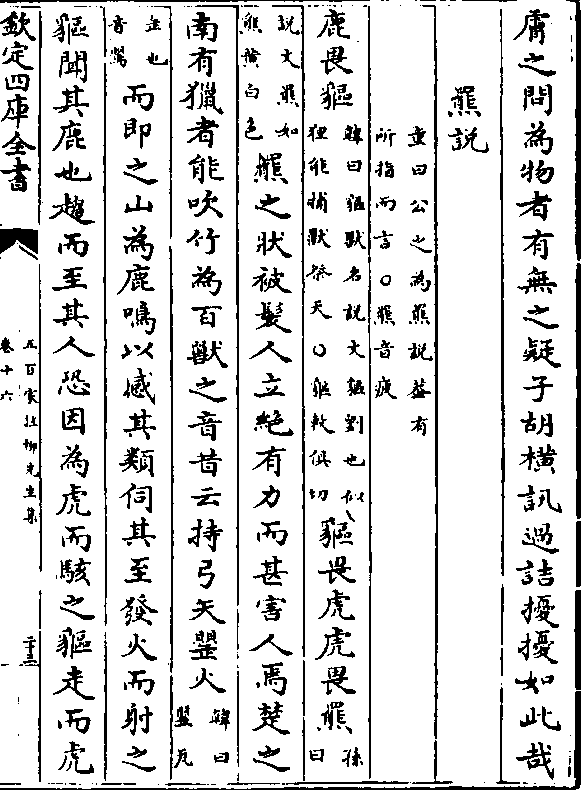 膚之問為物者有無之疑子胡橫訊過詰擾擾如此哉
羆説
童曰公之為羆説蓋有
所指而言○羆音疲
鹿畏貙
韓曰貙獸名説文貙劉也似
狸能捕獸祭天○貙敕俱切
貙畏虎虎畏羆
孫曰
説文羆如
熊黄白色
羆之狀被髮人立絶有力而甚害人焉楚之
南有獵者能吹竹為百獸之音昔云持弓矢罌火
韓曰
罌瓦
缶也
音鸎
而即之山為鹿鳴以感其類伺其至發火而射之
貙聞其鹿也趨而至其人恐因為虎而駭之貙走而虎
欽定四庫全書
五百家注柳先生集
卷十六
二十三